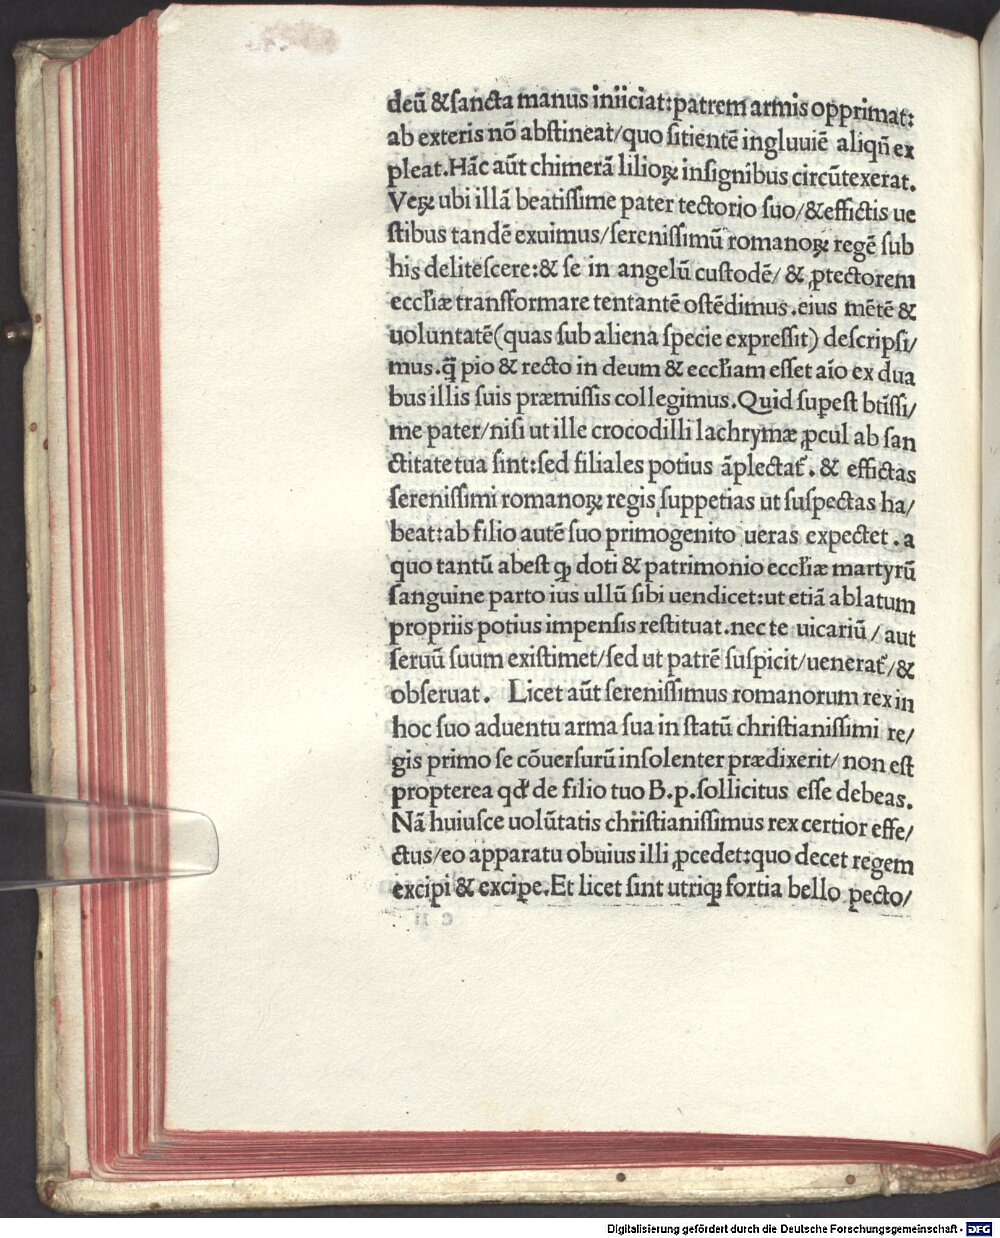 deū & sancta manus iniiciat: patrem armis opprimat:
ab exteris nō abstineat/ quo sitientē ingluuiē aliqñ ex
pleat. Hāc aūt chimerā lilioꝝ insignibus circūtexerat.
Veꝝ ubi illā beatissime pater tectorio suo/ & effictis ue
stibus tandē exuimus/ serenissimū romanoꝝ regē sub
his delitescere: & se in angelū custodē/ & ꝓtectorem
eccl'iæ transformare tentantē ostēdimus. eius mētē &
uoluntatē (quas sub aliena specie expressit) descripsi/
mus. q̄ pio & recto in deum & eccl'iam esset aīo ex dua
bus illis suis præmissis collegimus. Quid supest btīssi/
me pater/ nisi ut ille crocodilli lachrymæ ꝓcul ab san
ctitate tua sint: sed filiales potius āplectat᷑. & effictas
serenissimi romanoꝝ regis suppetias ut suspectas ha/
beat: ab filio autē suo primogenito ueras expectet. a
quo tantū abest ꝙ doti & patrimonio eccl'iæ martyrū
sanguine parto ius ullū sibi uendicet: ut etiā ablatum
propriis potius impensis restituat. nec te uicariū / aut
seruū suum existimet/ sed ut patrē suspicit/ uenerat᷑/ &
obseruat. Licet aūt serenissimus romanorum rex in
hoc suo aduentu arma sua in statū christianissimi re/
gis primo se cōuersurū insolenter prædixerit/ non est
propterea qd' de filio tuo B. p. sollicitus esse debeas.
Nā huiusce uolūtatis christianissimus rex certior effe/
ctus/ eo apparatu obuius illi ꝓcedet: quo decet regem
excipi & excipe. Et licet sint utriqꝫ fortia bello pecto/
Digitalisierung gefördert durch die Deutsche Forschungsgemeinschaft - DFG